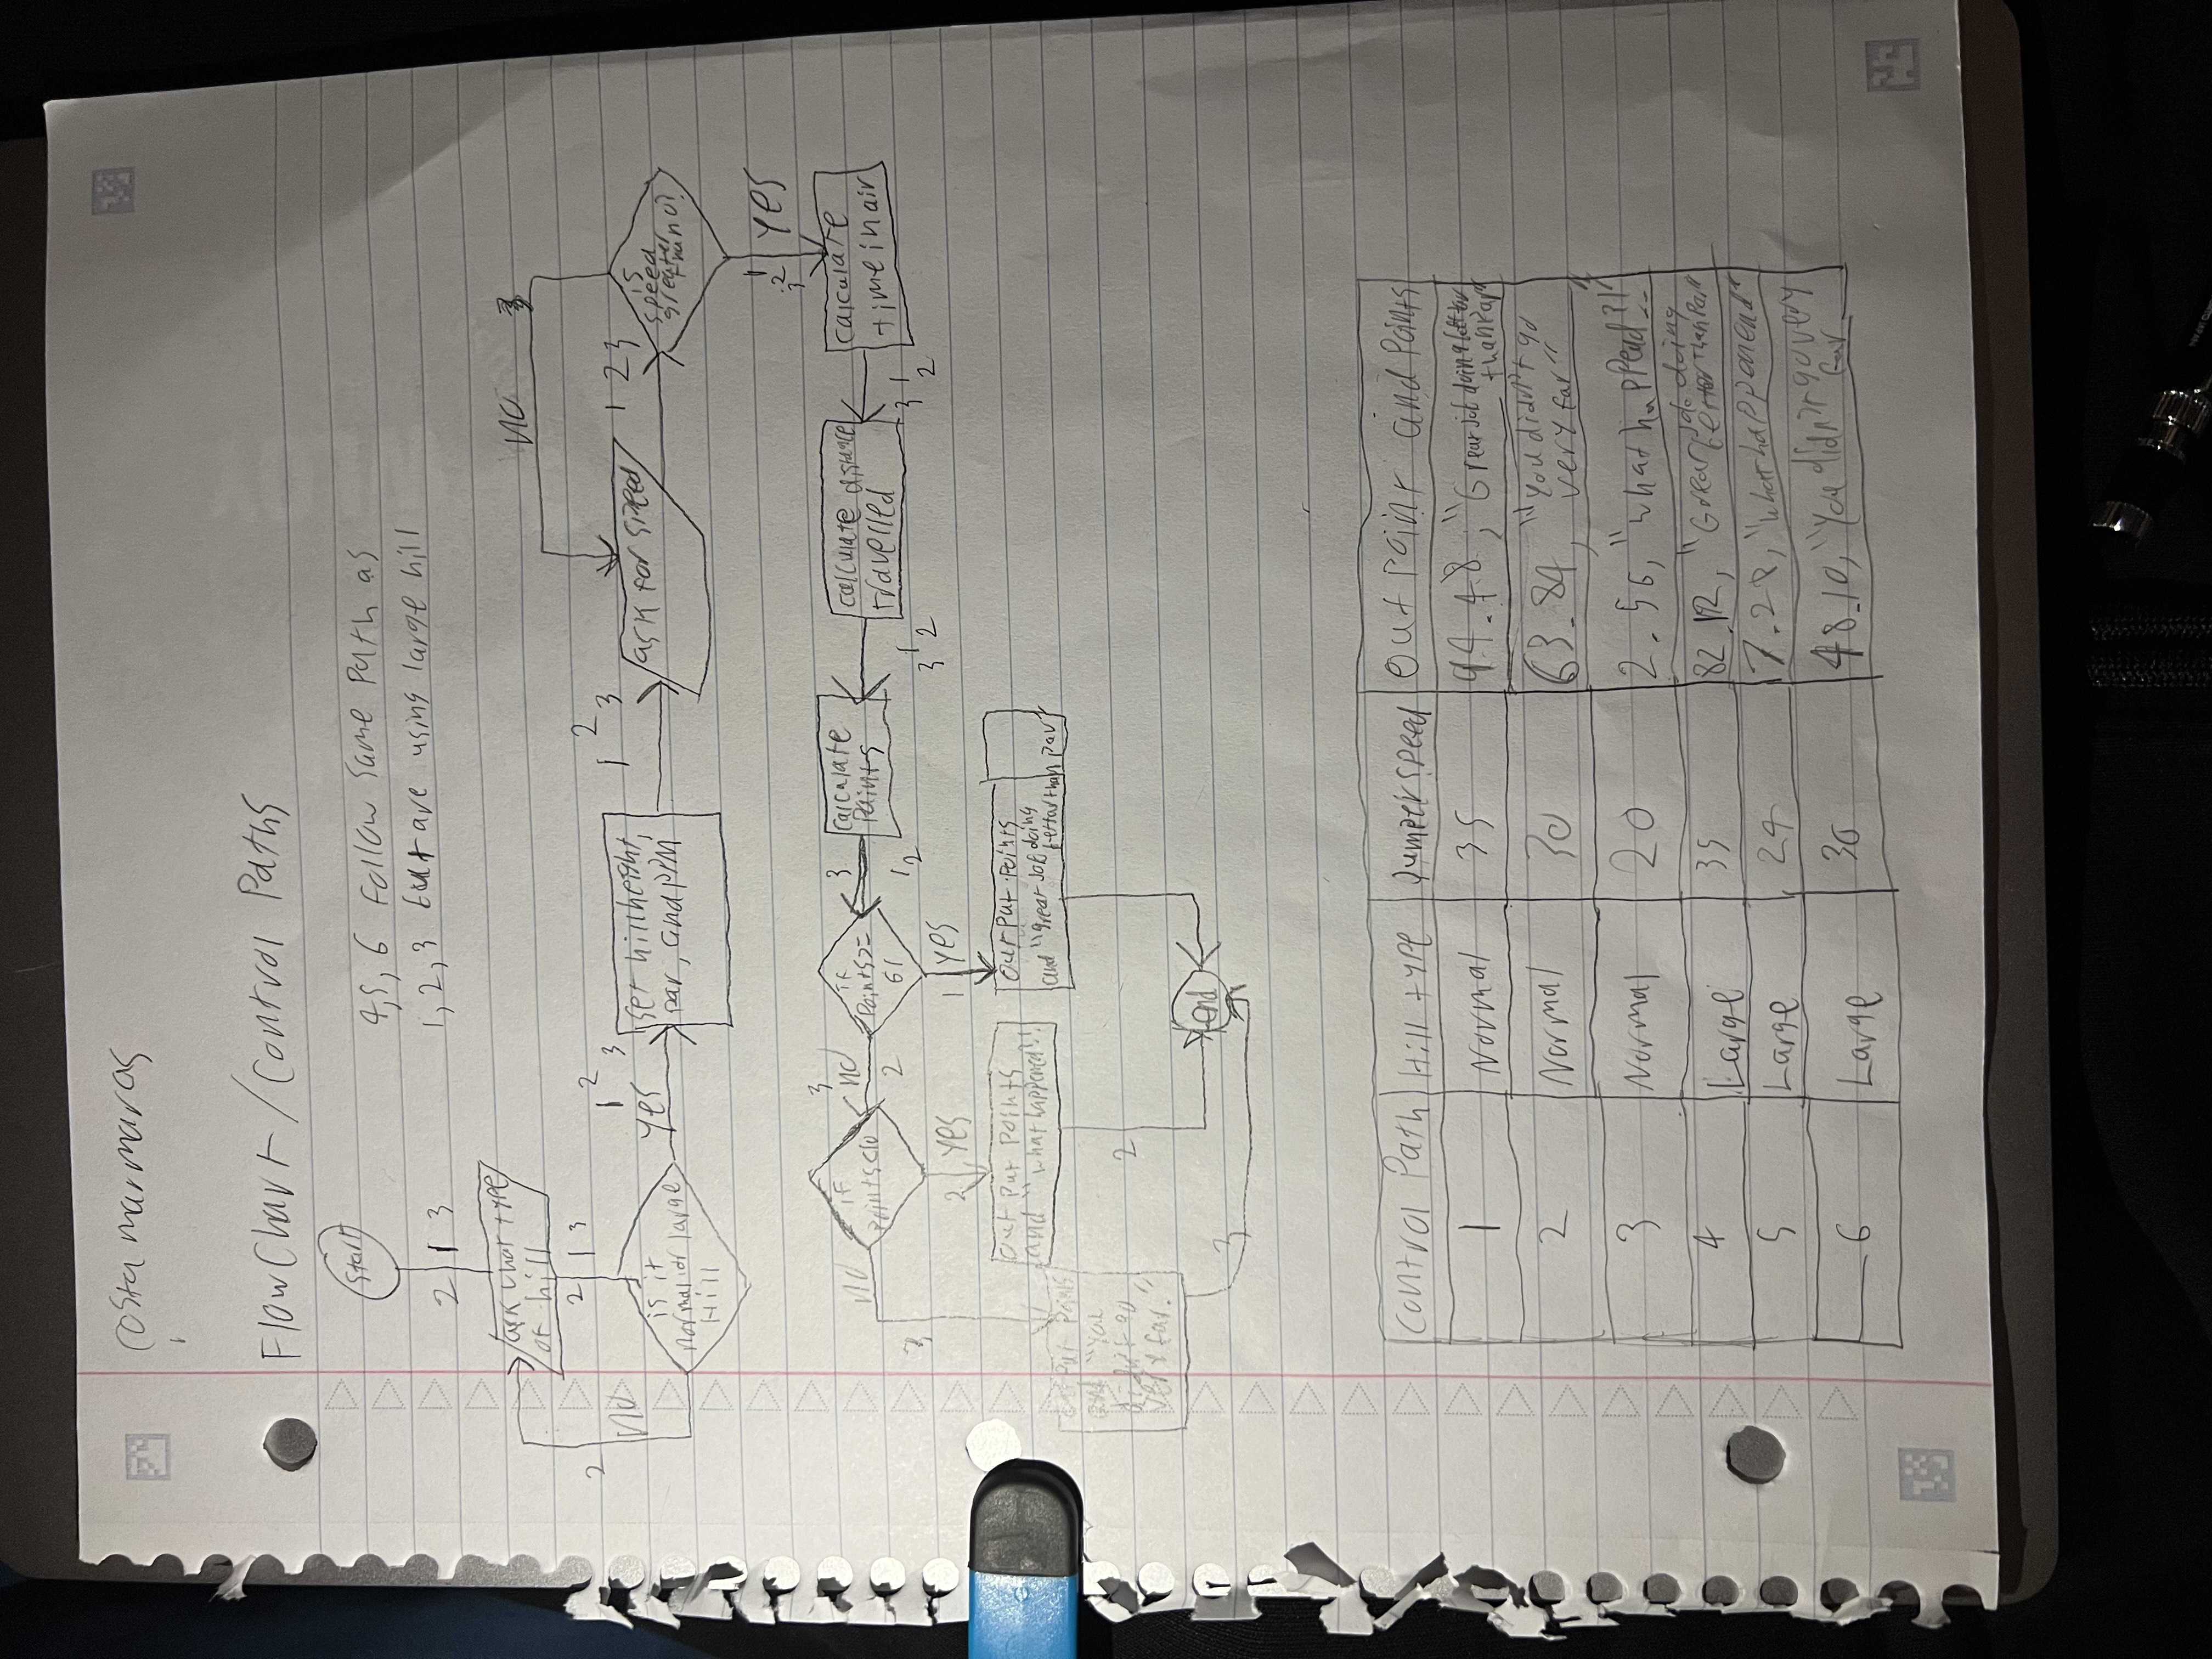 Costa marmaras
Flow Chart / Control Paths
Start
4, 5, 6 Follow same path as
1, 2, 3 but are using large hill
2 1 3
ask what type
of hill
2 1 3
2
NO
is it
normal or large
Hill
1 2 3
yes
set hillheight,
par, and PPM
1 2 3
ask for speed
NO
1 2 3
is
speed
greater
than 0?
1
2
3
yes
calculate
time in air
3 1 2
calculate distance
travelled
3 1 2
calculate
points
3
1 2
if
Points >=
61
3
no
2
if
Points < 10
no
3
2 yes
1 yes
out put points
and "what happened?!
output points
and "Great Job doing
better than par"
out put points
and "you
didn't go
very far."
2
end
3
Control Path Hill type Jumper speed Out point and Points
1 Normal 35 94.48, "Great job doing better
than Par"
2 Normal 30 63.84, "You didn't go
very far"
3 Normal 20 2.56, "what happend?!"
4 Large 35 82.12, "Great job doing
better than Par"
5 Large 24 7.28, "what happenend"
6 Large 30 48.10, "You didn't go very
far